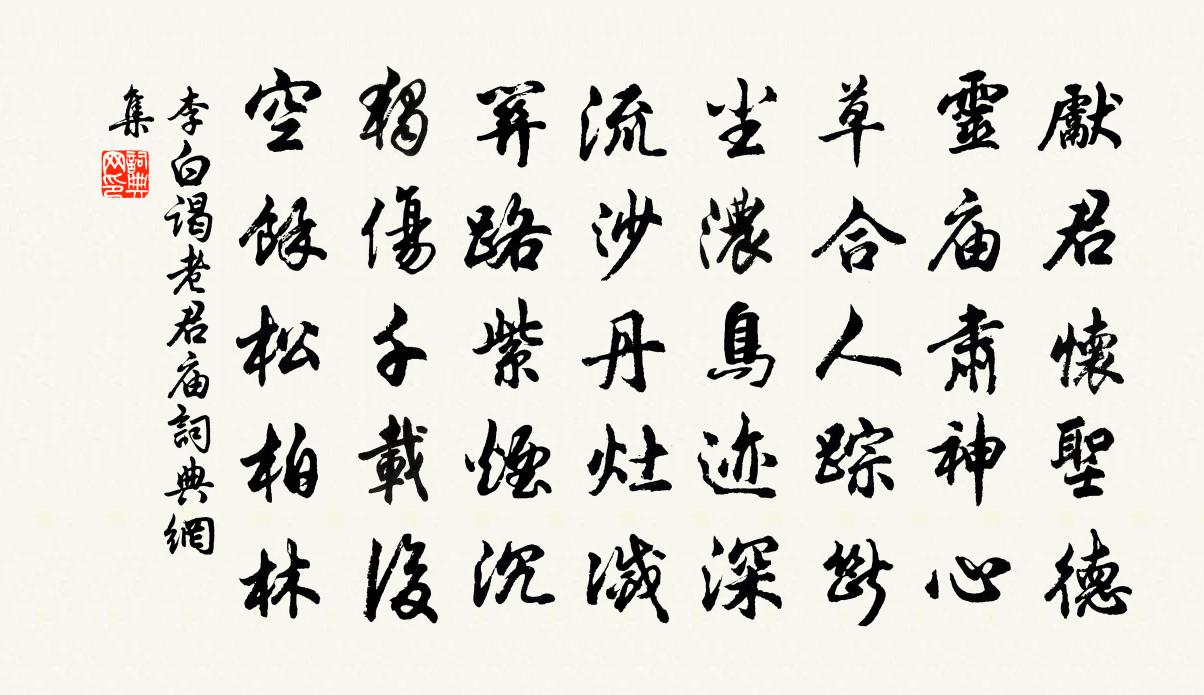 獻君懷聖德
靈庙肅神心
草合人踪斷
尘濃鳥迹深
流沙丹灶滅
關路紫煙沉
獨傷千載後
空餘松柏林
李白谒老君庙詞典網
集
詞典网印